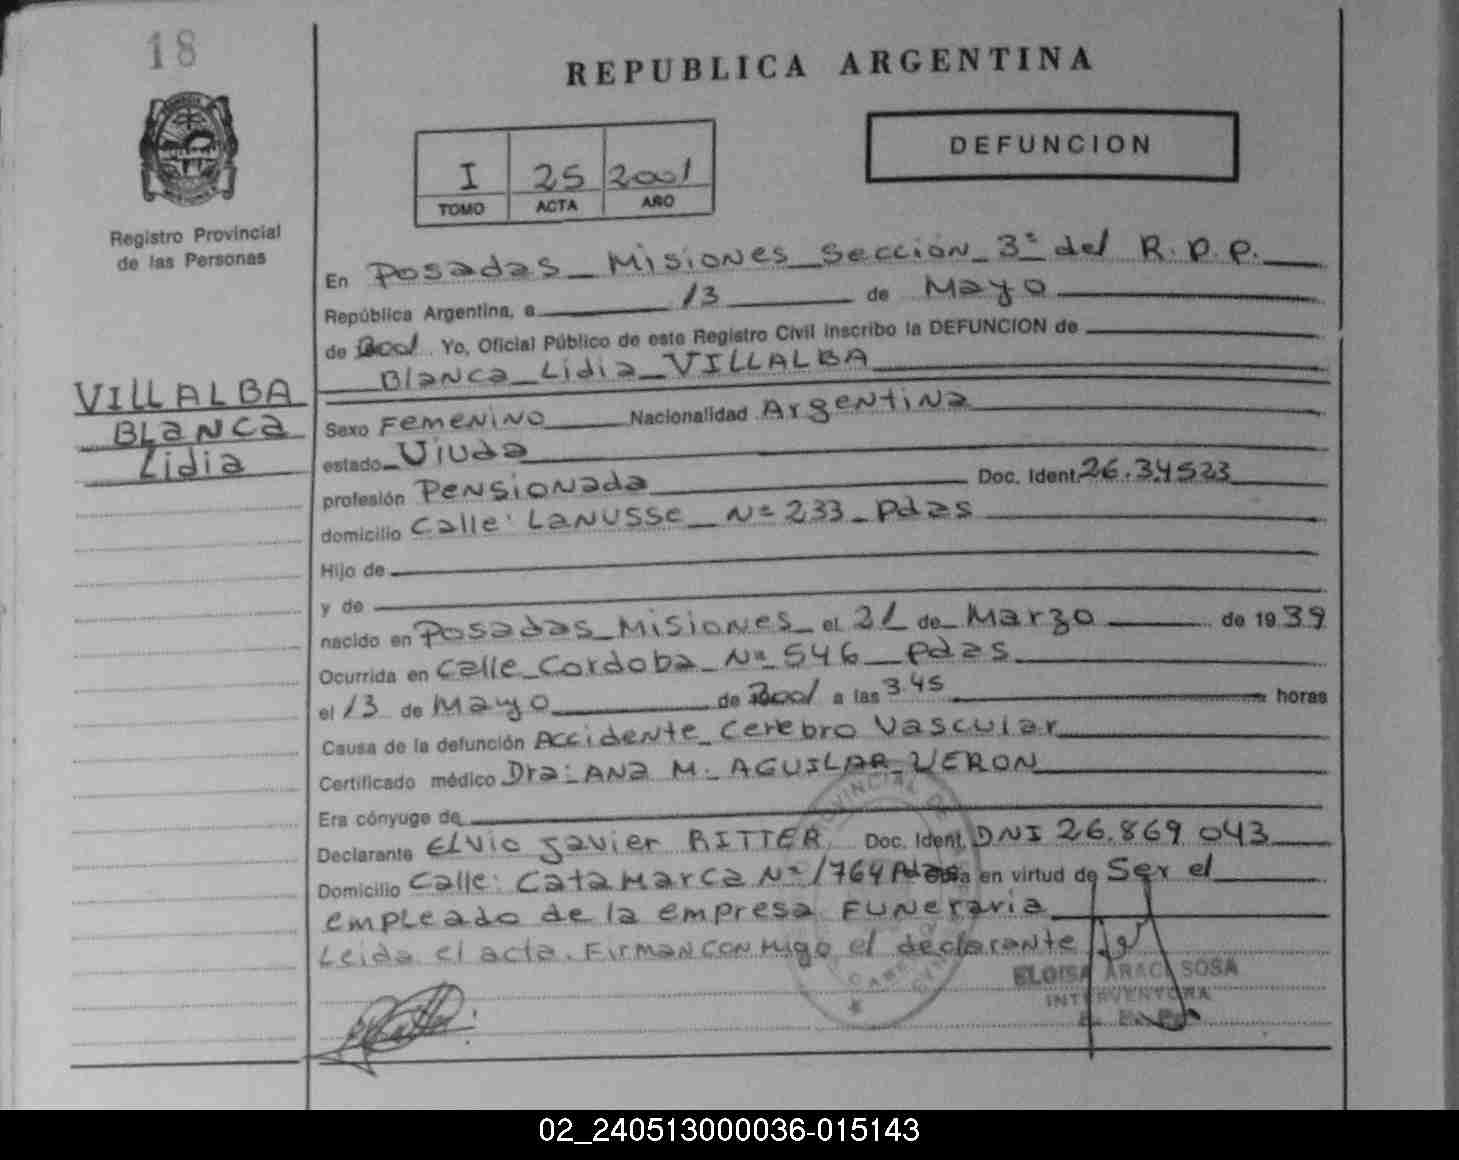 18
REPUBLICA ARGENTINA
DEFUNCION
I 25 2001
TOMO ACTA AÑO
Registro Provincial
de las Personas
En Posadas Misiones Sección 3ª del R.P.P.
República Argentina, a 13 de Mayo
de 2001 Yo, Oficial Público de este Registro Civil inscribo la DEFUNCION de
Blanca Lidia VILLALBA
VILLALBA
BLANCA
Lidia
Sexo Femenino Nacionalidad Argentina
estado Viuda
profesión Pensionada Doc. Ident. 26.34523
domicilio Calle: Lanusse Nº 233 Pdas
Hijo de
y de
nacido en Posadas Misiones el 21 de Marzo de 1939
Ocurrida en Calle Cordoba Nº 546 Pdas
el 13 de Mayo de 2001 a las 3.45 horas
Causa de la defunción Accidente Cerebro Vascular
Certificado médico Dra: ANA M. AGUILAR VERON
Era cónyuge de
Declarante Elvio Javier RITTER Doc. Ident. DNI 26.869 043
Domicilio Calle: Catamarca Nº 1764 Pdas en virtud de Ser el
empleado de la empresa Funeraria
Leida el acta. Firman conmigo el declarante
ELOISA ARACI SOSA
INTERVENTORA
02_240513000036-015143